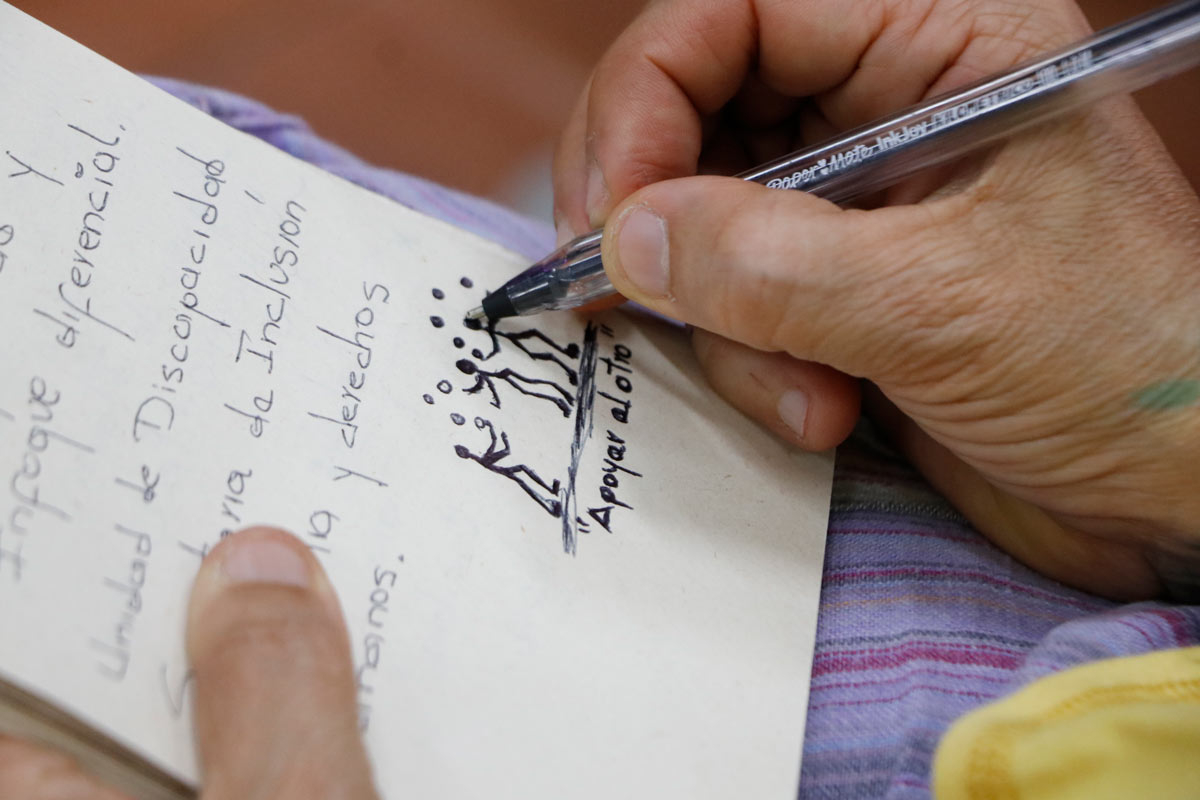 y
Enfoque diferencial.
Unidad de Discapacidad
de Inclusión
y derechos
"Apoyar al otro"
Paper Mate InkJoy KILOMETRICO